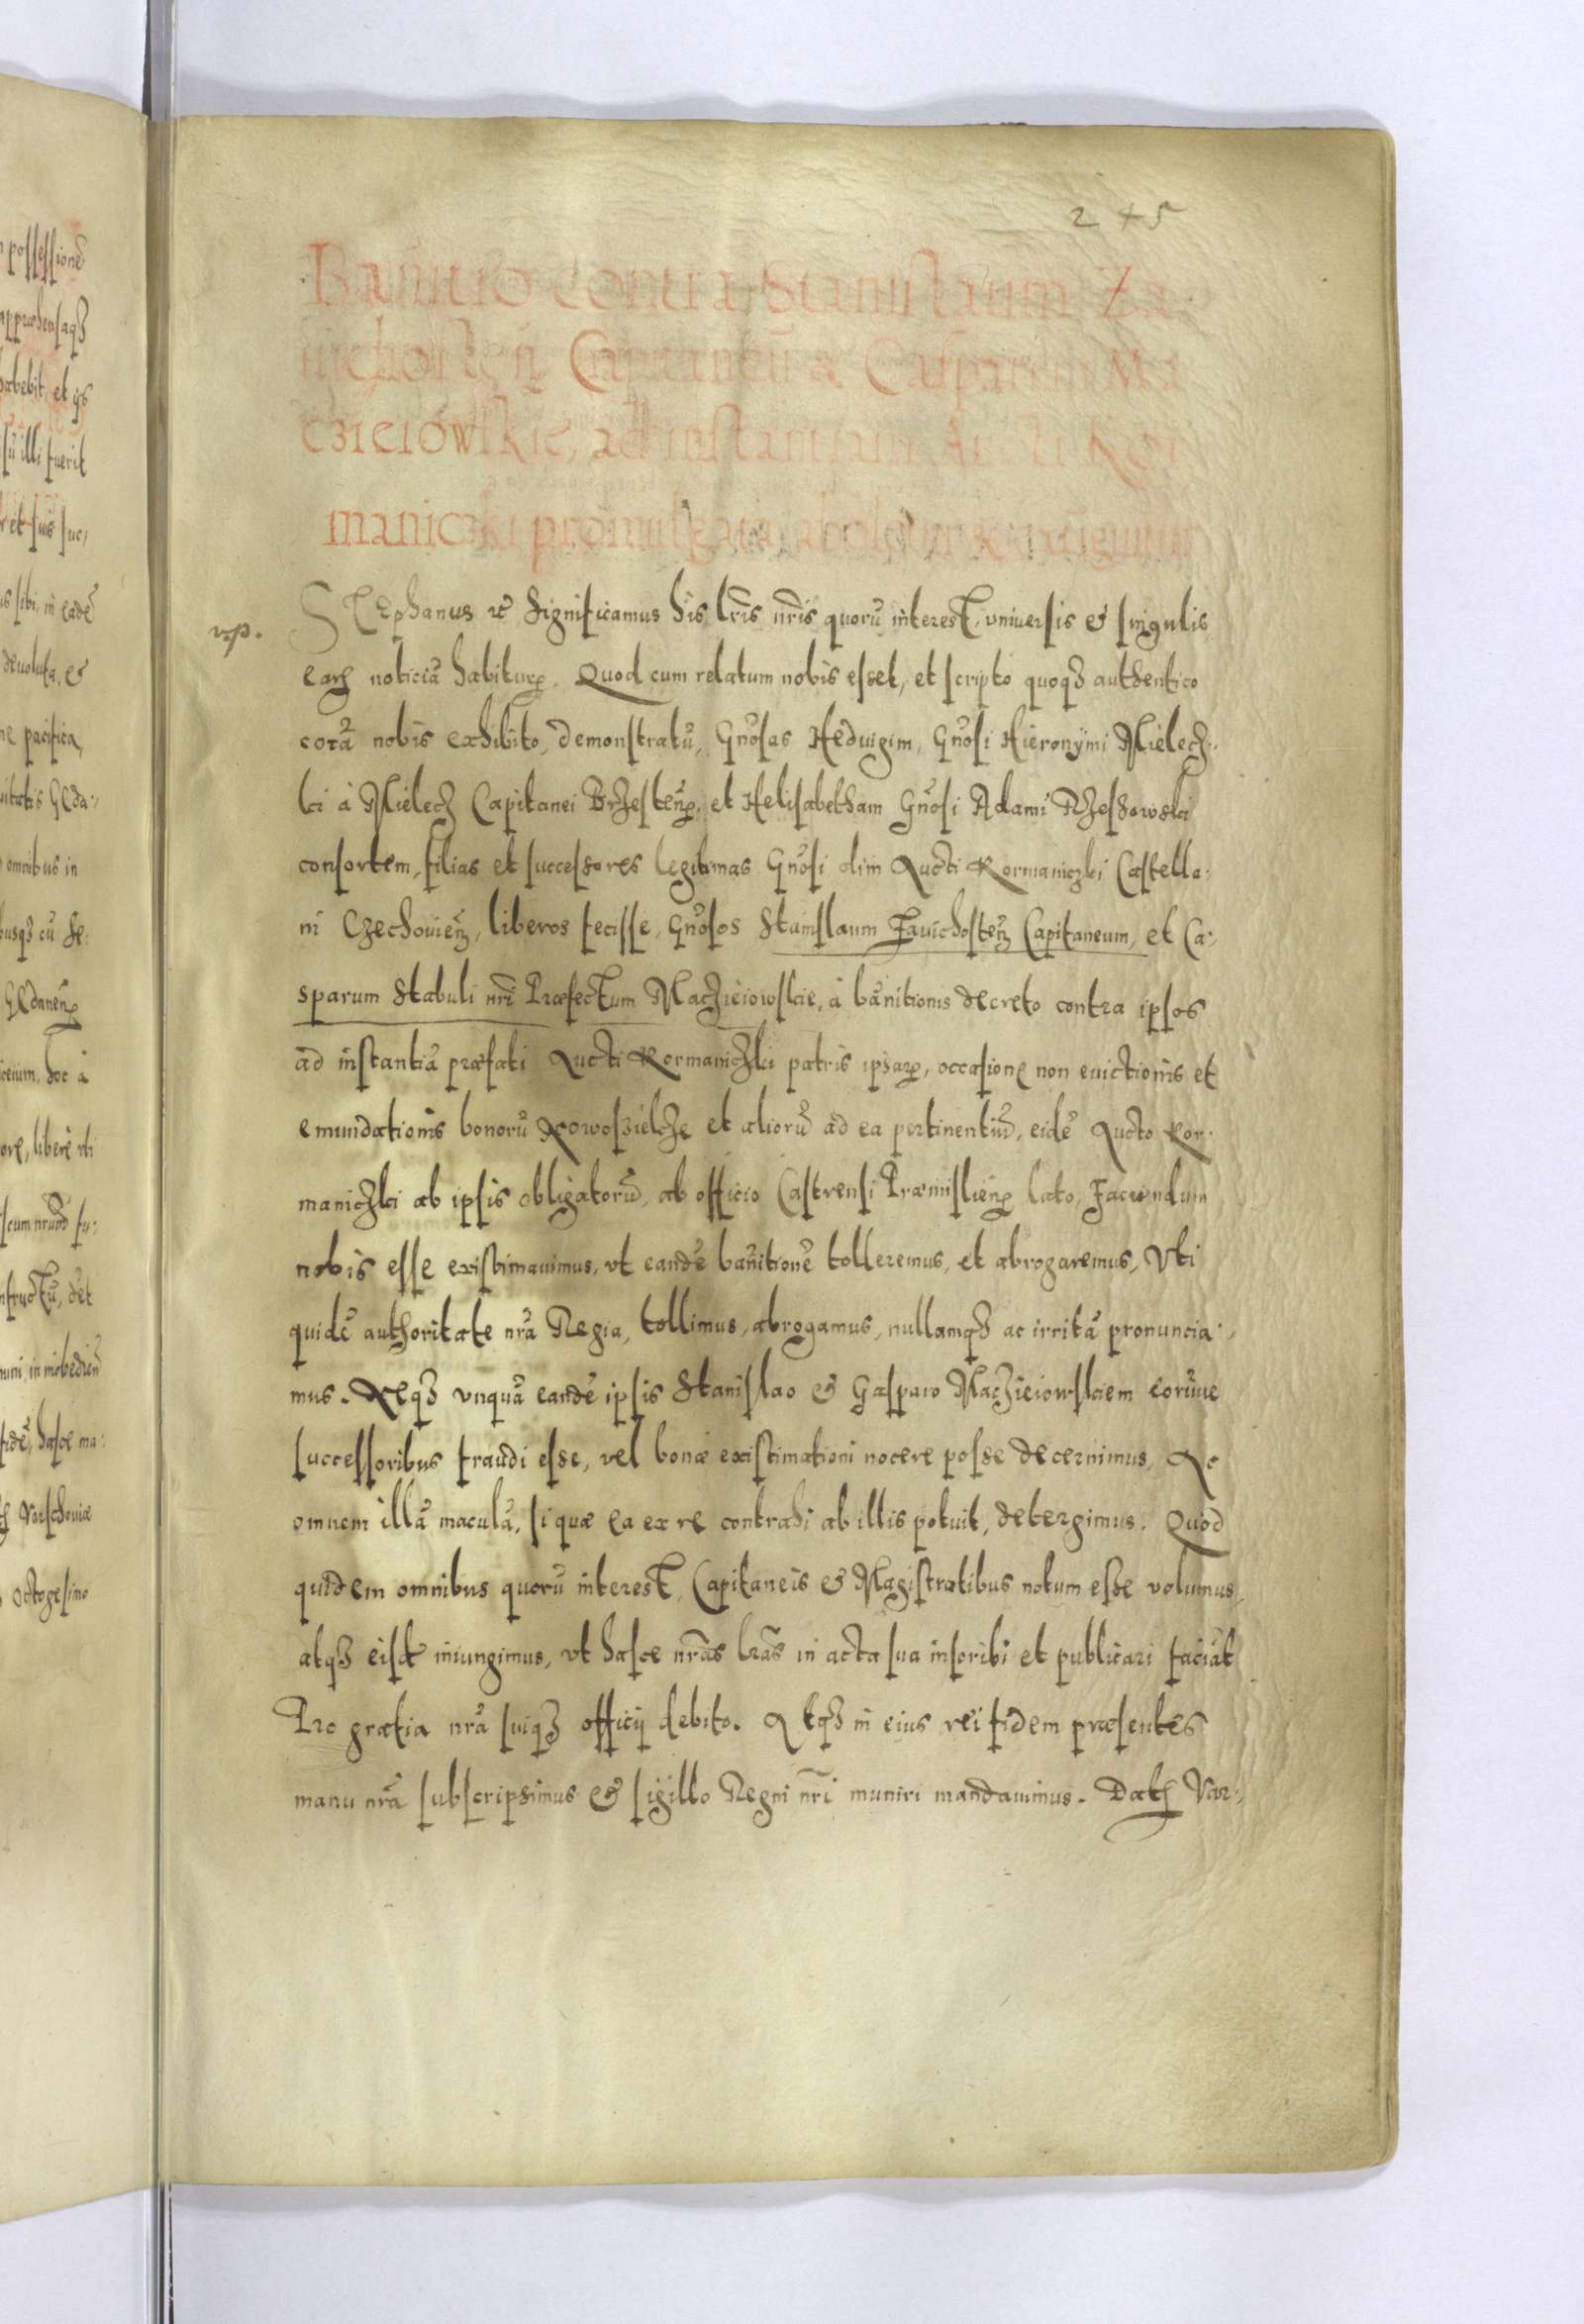 245
Bañitio contra Stanislaum Za
uichosteñ Capitaneũ & Casparem Ma
czieiowskie, ad instantiam Aucti Kor
maniczki promulgata, aboletur & extiguitur
vp.
STEphanus &c̃ Significamus his lr̃is nr̃is quorũ interest, vniuersis & singulis
earũ noticiã habiturꝝ. Quod cum relatum nobis esset, et scripto quoqꝫ authentico
corã nobis exhibito, demonstratũ, Gñosas Heduigim, Gñosi Hieronymi Mielecz:
ki à Mielecz Capitanei Brzesteñ, et Helisabetham Gñosi Adami Rzeszowski
consortem, filias et successores legitimas Gñosi olim Aucti Kormaniczki Castella:
ni Czechouieñ, liberos fecisse, Gñosos Stanislaum Zauichosteñ Capitaneum, et Ca:
sparum Stabuli nr̃i Præfectum Maczieiowskie, à bañitionis decreto contra ipsos
ad instantiã præfati Aucti Kormaniczki patris ipsarꝝ, occasione non euictionis et
emundationis bonorũ Nowosielcze et aliorũ ad ea pertinentiũ, eidẽ Aucto Kor:
maniczki ab ipsis obligatorũ, ab officio Castrensi Præmislieñ lato, Faciundum
nobis esse existimauimus, vt eandẽ bañitionẽ tolleremus, et abrogaremus, Vti
quidẽ authoritate nr̃a Regia, tollimus, abrogamus, nullamqꝫ ac irritã pronuncia:
mus. Neqꝫ vnquã eandẽ ipsis Stanislao & Gasparo Maczieiowskiem eorũue
successoribus fraudi esse, vel bonæ existimationi nocere posse decernimus, Ac
omnem illã maculã, si quæ ea ex re contrahi ab illis potuit, detergimus. Quod
quidem omnibus quorũ interest, Capitaneis & Magistratibus notum esse volumus,
atqꝫ eisd iniungimus, vt hasce nr̃as lr̃as in acta sua inscribi et publicari faciãt
Pro gratia nr̃a suiqꝫ officij debito. Atqꝫ in eius rei fidem præsentes
manu nr̃a subscripsimus & sigillo Regni nr̃i muniri mandauimus. Dat Var: